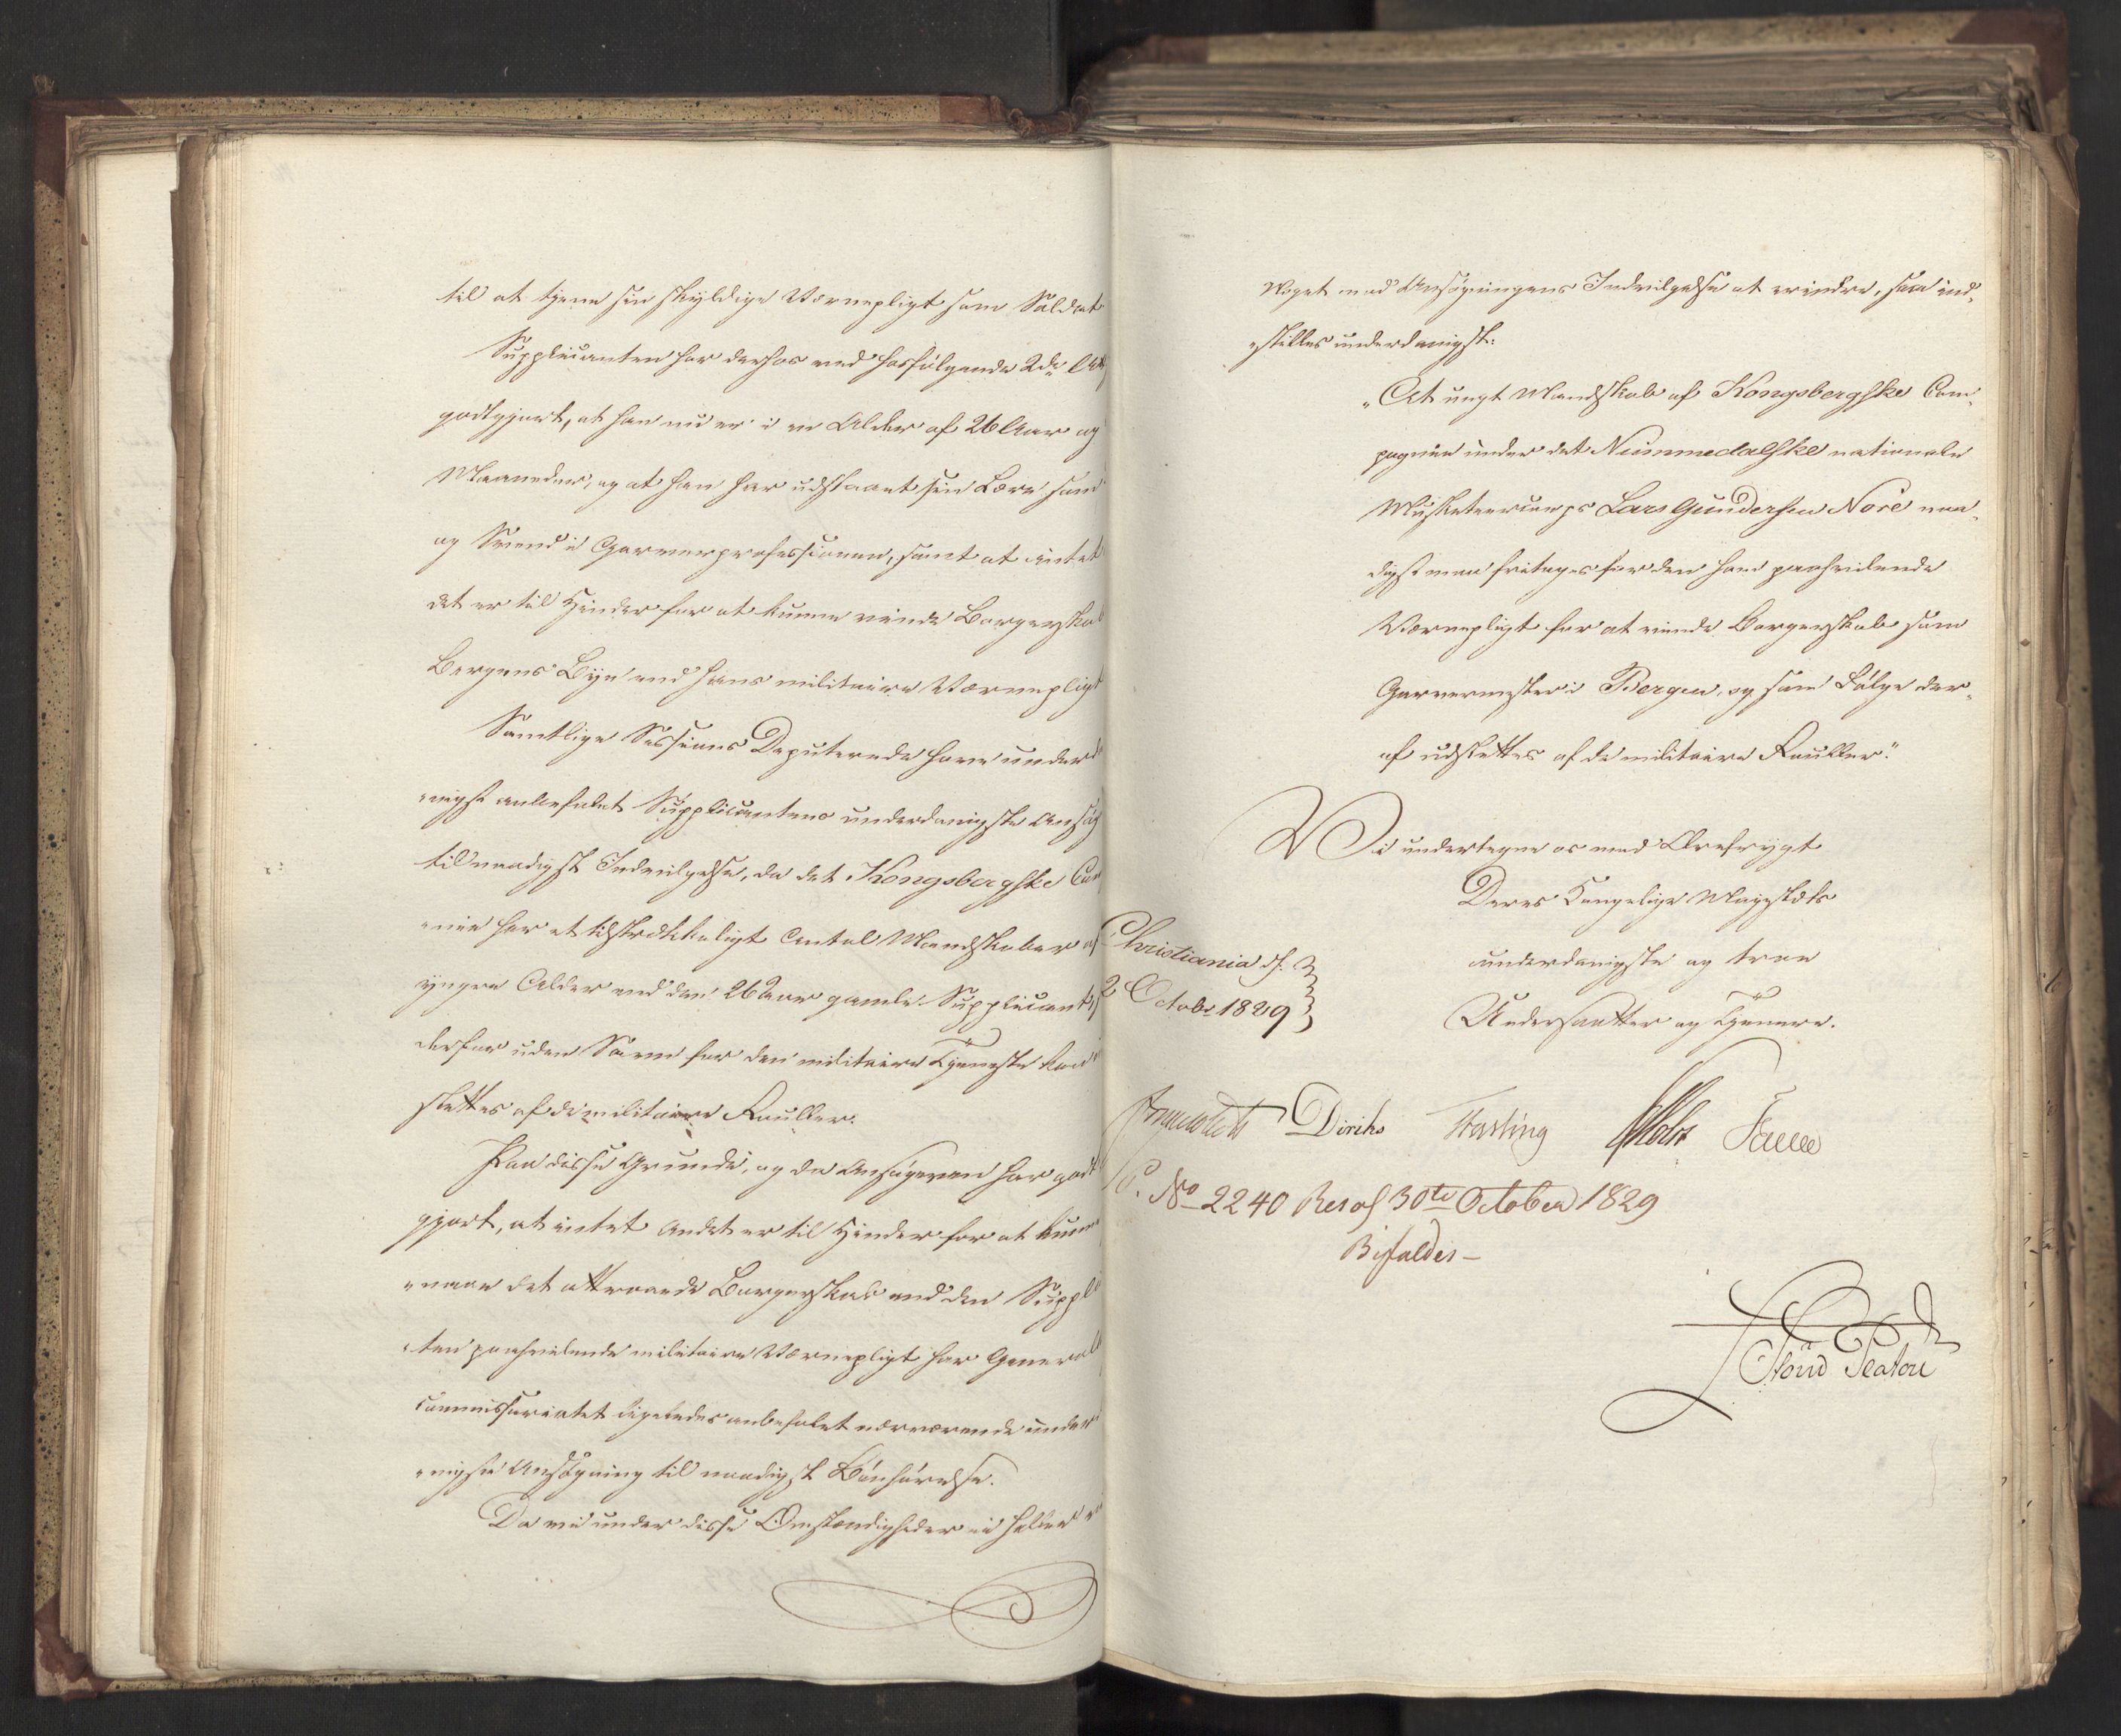 til at tjene sin skyldige Værnepligt som Soldat
Supplicanten har derhos ved hosfølgende 2de Att
godtgjort, at han nu er i en Alder af 26 Aar og
Maaneder, og at han har udstaaet sin Lære som
og Svend i Garverprofessionen, samt at intet
det er til Hinder for at kunne vinde Borgerskab
Bergens Bye end hans militaire Værnepligt
Samtlige Sessions Deputerede have underd
nigst anbefalet Supplicantens underdanigste Ansøg
til naadigst Indvilgelse, da det Kongsbergske Com
nie har et tilstrækkeligt Antal Mandskaber af
yngre Alder end den 26 Aar gamle Supplicant,
derfor uden Savn for den militaire Tjeneste kan
slettes af de militaire Rouller.
Paa disse Grunde, og da Ansøgeren har godt
gjort, at intet Andet er til Hinder for at kunne
naae det attraaede Borgerskab end den Suppli
ten paahvilende militaire Værnepligt har General
commissariatet ligeledes anbefalet nærværende under
nigste Ansøgning til naadigst Bønhørelse.
Da vi under disse Omstændigheder ei heller
Noget mod Ansøgningens Indvilgelse at erindre, saa ind,
stilles underdanigst:
"At ungt Mandskab af Kongsbergske Com,
pagnie under det Nummedalske nationale
Musketeercorps Lars Gundersen Nore naa,
digst maa fritages for den ham paahvilende
Værnepligt for at vinde Borgerskab som
Garvermester i Bergen, og som Følge der,
af udslettes af de militaire Rouller."
Vi undertegne os med Ærefrygt
Deres Kongelige Majestæts
underdanigste og troe
Undersaatter og Tjenere.
Christiania d.
2 Octobr 1829
Diriks Fasting Holst
No 2240 Resol 30te October 1829
Bifaldes –